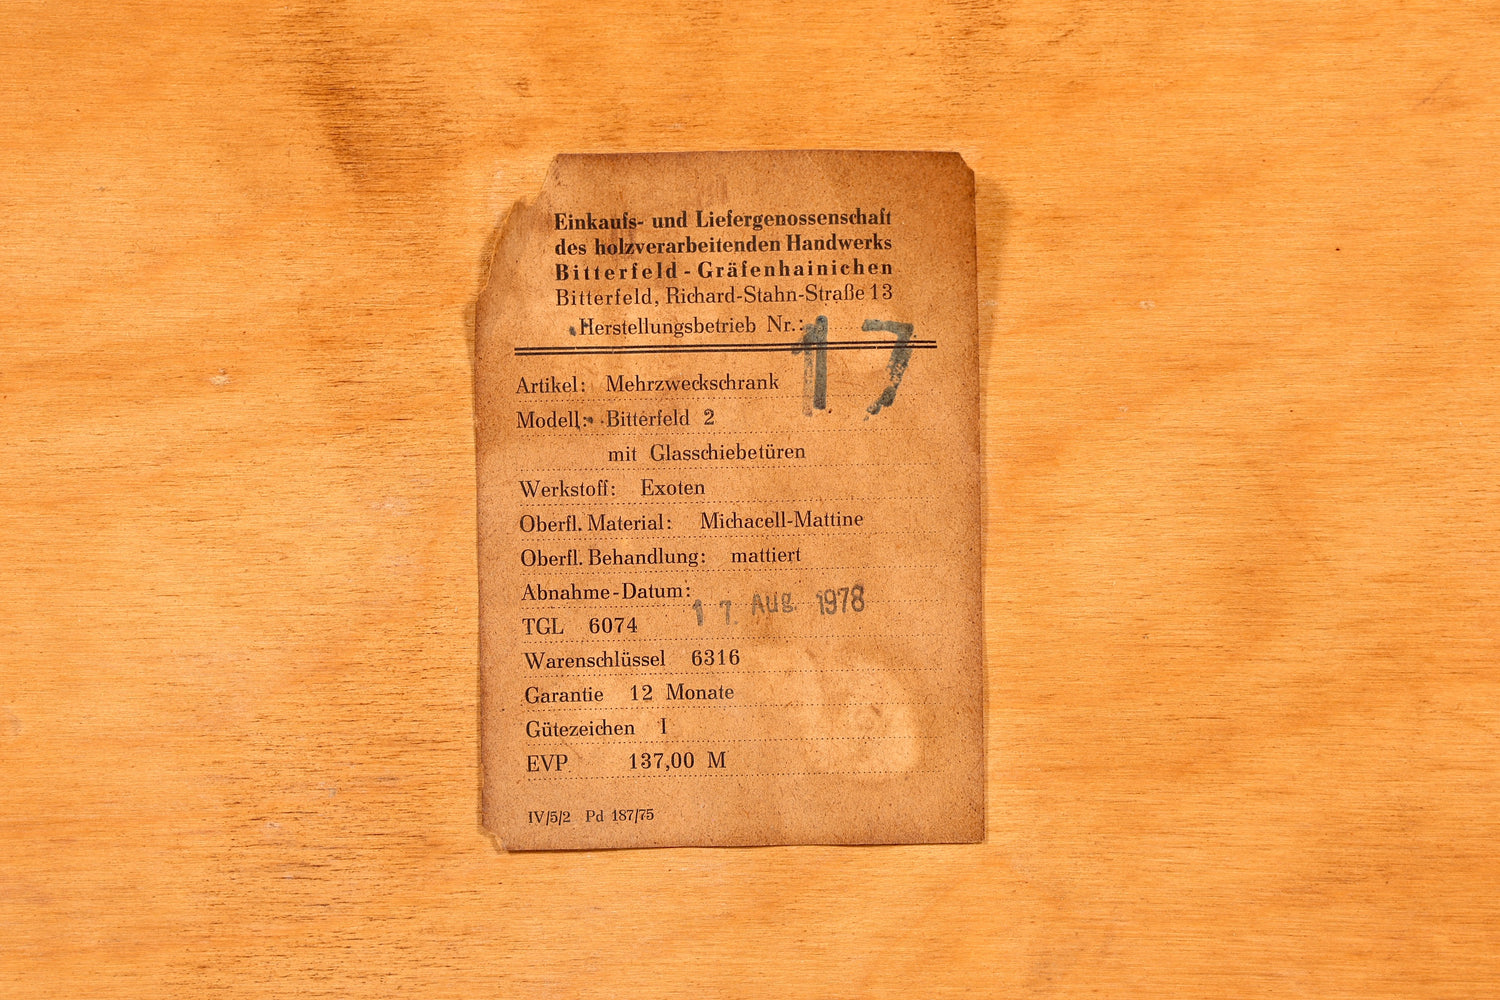 Einkaufs- und Liefergenossenschaft
des holzverarbeitenden Handwerks
Bitterfeld - Gräfenhainichen
Bitterfeld, Richard-Stahn-Straße 13
Herstellungsbetrieb Nr.: 17
Artikel: Mehrzweckschrank
Modell: Bitterfeld 2
mit Glasschiebetüren
Werkstoff: Exoten
Oberfl. Material: Michacell-Mattine
Oberfl. Behandlung: mattiert
Abnahme-Datum: 17. Aug. 1978
TGL 6074
Warenschlüssel 6316
Garantie 12 Monate
Gütezeichen I
EVP 137,00 M
IV/5/2 Pd 187/75